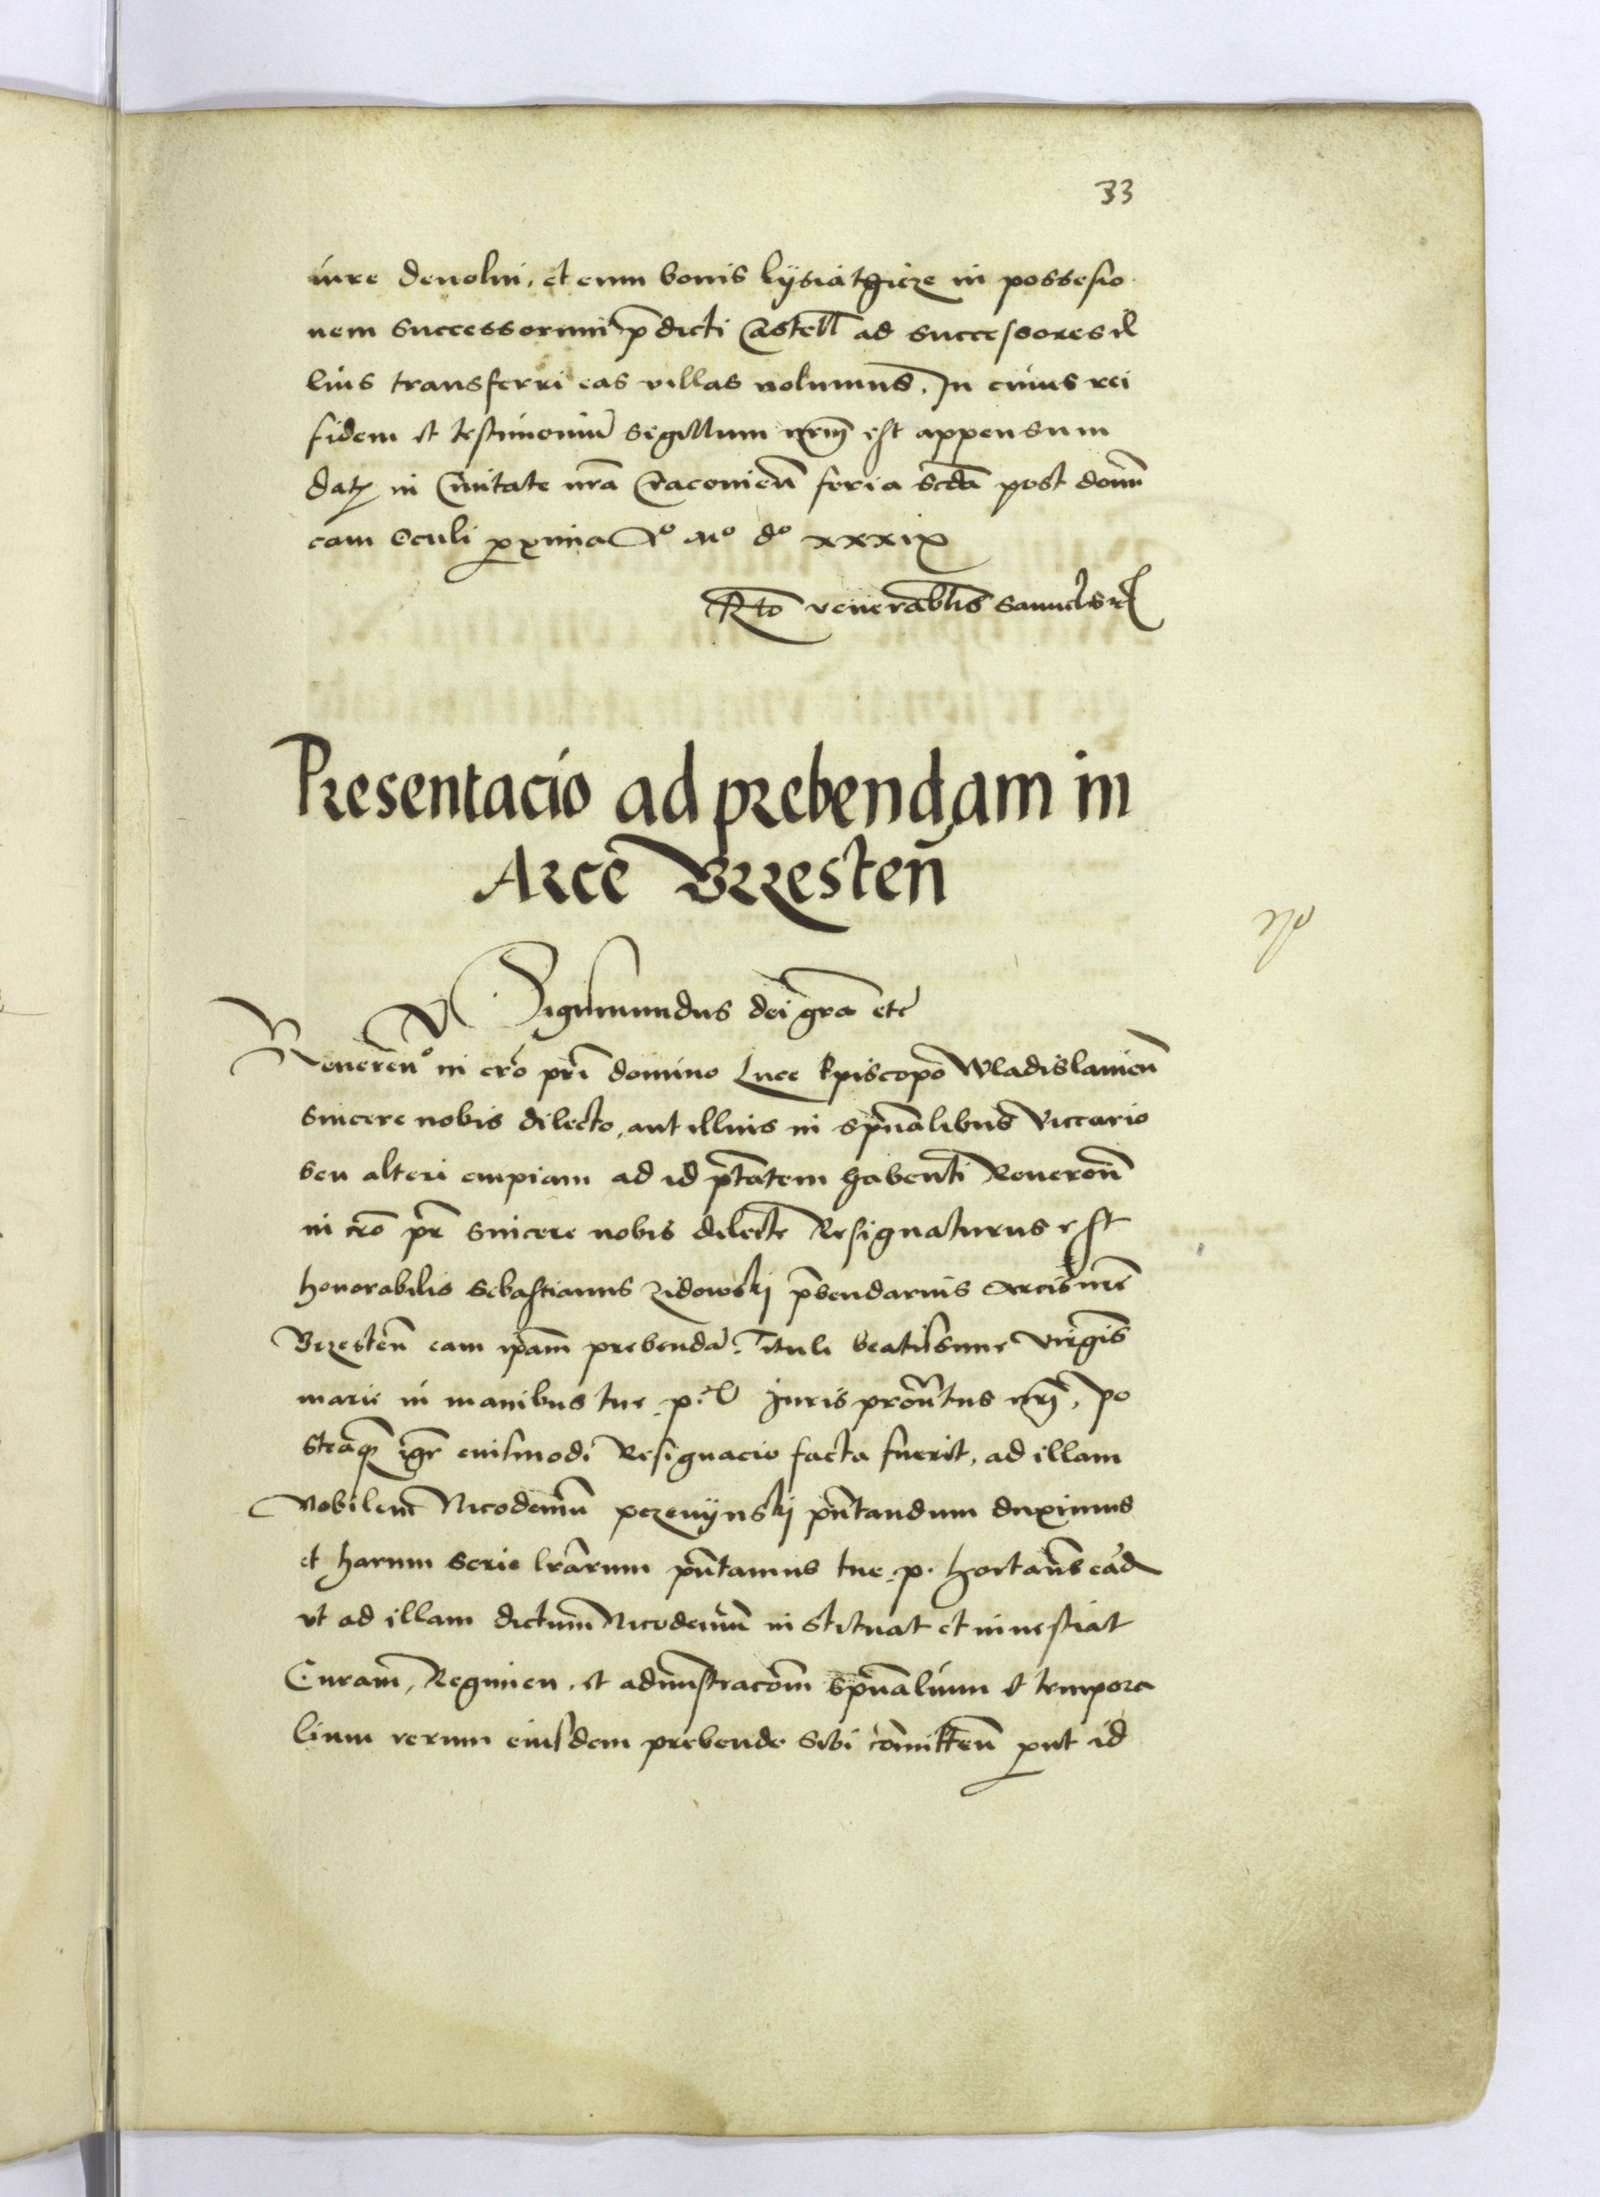 33
iure deuolui, et cum bonis lysiathicze in possesio
nem successorum p̄dicti Castell̄ ad successores il
lius transferri eas villas volumus. In cuius rei
fidem et testimoniū sigillum nrm̄ est appensum
Dat in Ciuitate nr̄a Cracouien̄ feria scdā post domi
cam Oculi proxima Aº Mº dº xxxix
Rto venerablis Samuelis
Presentacio ad prebendam in
Arce Brzesten̄
Sigismundus dei gr̄a etc
Reueren̄º in cr̄o pr̄i domino Luce Episcopo Wladislauien̄
sincere nobis dilecto, aut illius in sp̄ualibus Viccario
seu alteri cuipiam ad id ptatem habenti Reueren̄
in cr̄o pr̄ sincere nobis dilecte Resignaturus est
honorabilis Sebastianus Zidowskj p̄bendarius Arcis nr̄e
Brzesten̄ eam ipam̄ prebendā Tituli beatissime virginis
marie in manibus tue p. v Iuris pron̄tus nr̄i, po
steaq̄ igr̄ eiusmodi Resignacio facta fuerit, ad illam
Nobilem Nicodemū pczenynskj pn̄tandum duximus
et harum serie lrārum pn̄tamus tue p. hortan̄s eād
vt ad illam dictum Nicodemū instituat et inuestiat
Curam, Regimen, et admnistracom̄ sp̄ualium et tempora
lium rerum eiusdem prebende sibi cōmitten̄ put id